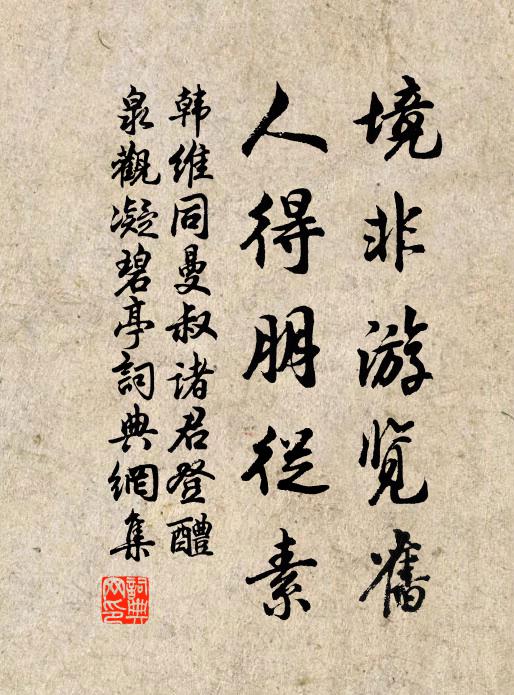 境非游览舊
人得朋從素
韩維同曼叔诸君登醴
泉觀凝碧亭詞典網集
詞典网印